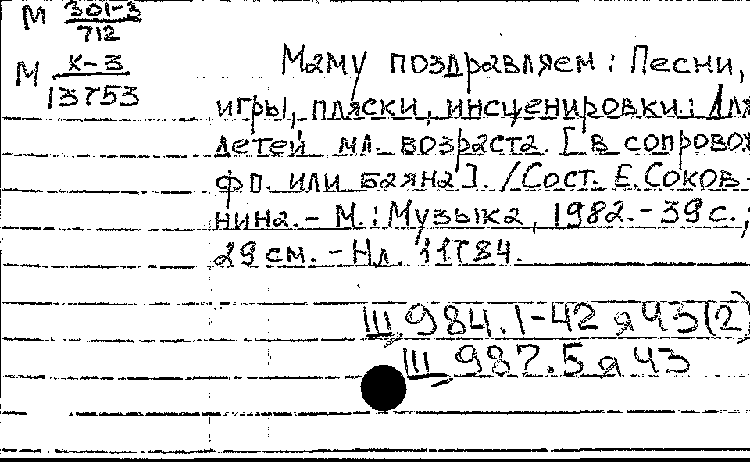 М 301-3
712
М К-3
13753
Маму поздравляем: Песни,
игры, пляски, инсценировки: Для
детей мл. возраста. [в сопровож
фп. или баяна]. /Сост. Е.Соков-
нина.- М.: Музыка, 1982.- 39 с.;
29 см. - Нл. 11784.
Ш 984.1-42 я 43(2)
Ш 987.5 я 43